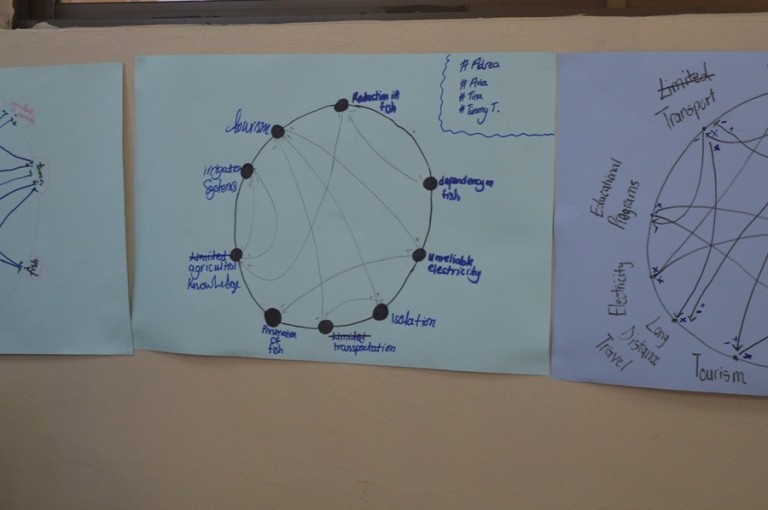 # Adrea
# Aria
# Tina
# Tummy T.
Reduction in
fish
tourism
irrigation
Systems
dependency on
fish
Limited
agricultural
Knowledge
unreliable
electricity
Isolation
Preservation
of
fish
Limited
transportation
Limited
Transport
Educational
Programs
Electricity
Long
Distance
Travel
Tourism
fish